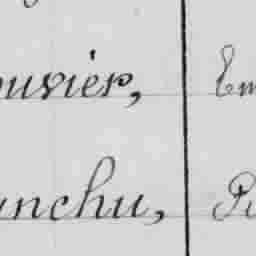 ouvier, Em
anchu, Pi